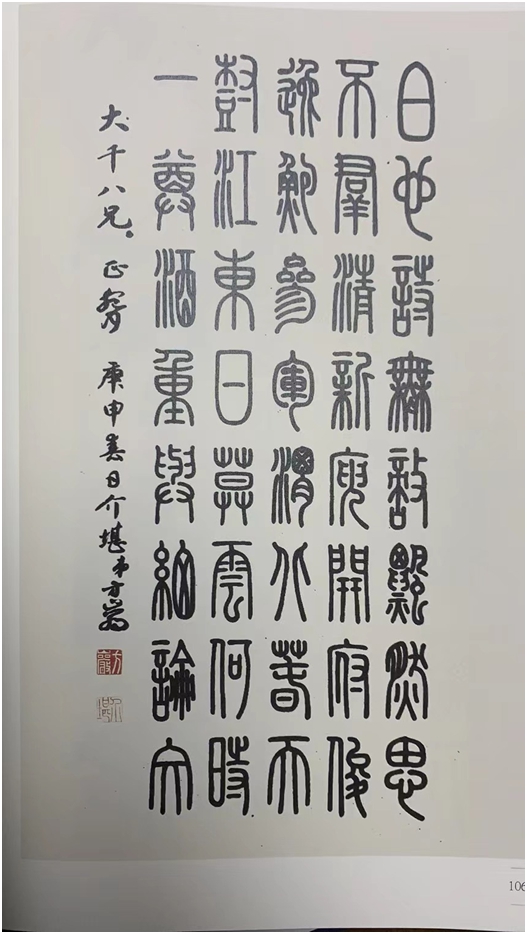 白也詩無敵飄然思
不羣清新庾開府俊
逸鮑參軍渭北春天
樹江東日莫雲何時
一尊酒重與細論文
大千八兄正 庚申春日介堪弟方巖
方巖
介堪
106